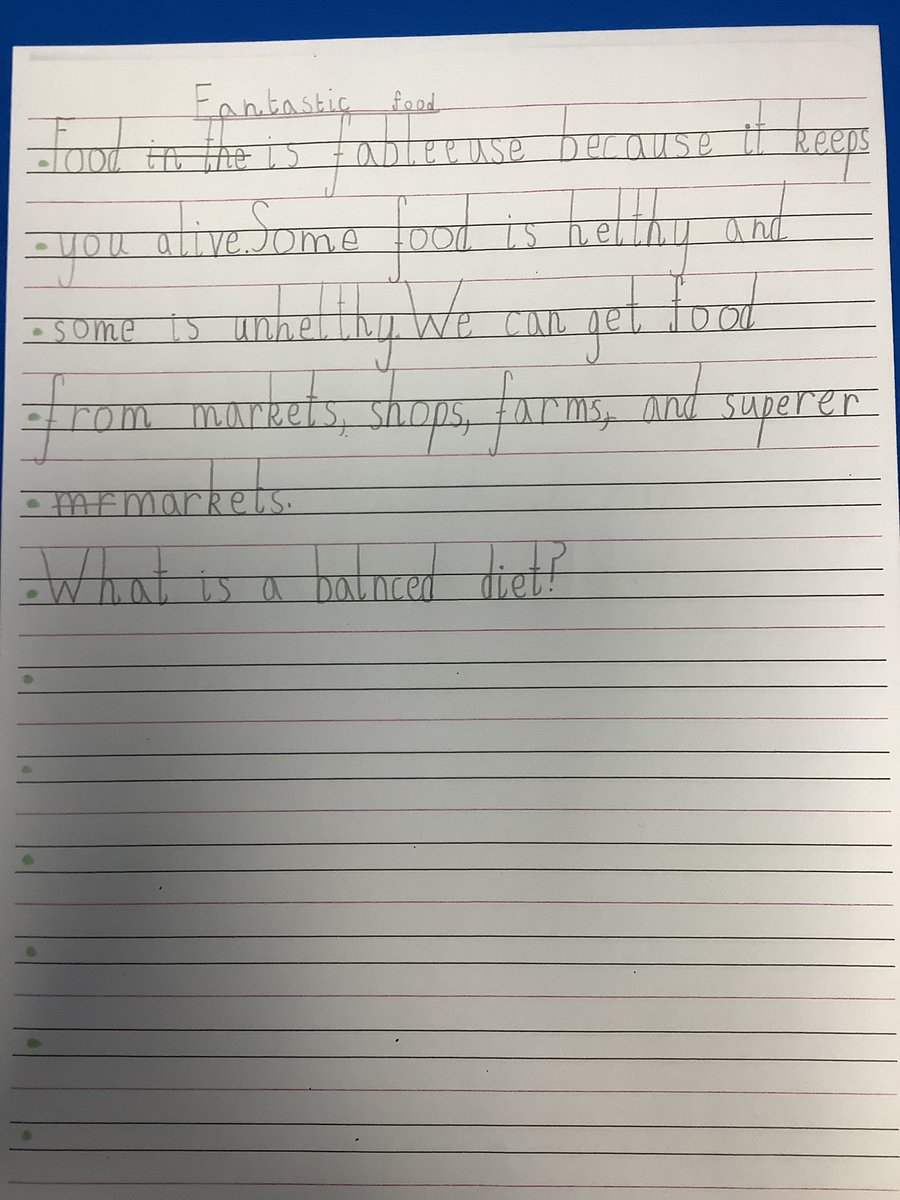 Fantastic food
Food in the is fableeuse because it keeps
you alive. Some food is helthy and
some is unhelthy. We can get food
from markets, shops, farms, and superer
markets.
What is a balnced diet?